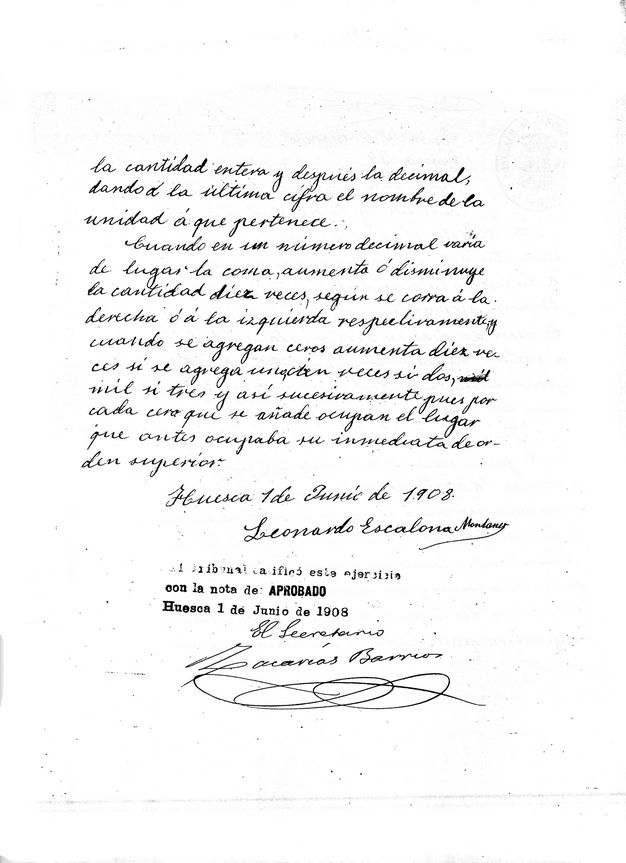 la cantidad entera y después la decimal,
dando á la última cifra el nombre de la
unidad á que pertenece.
Cuando en un número decimal varia
de lugar la coma, aumenta ó disminuye
la cantidad diez veces, según se corra á la
derecha ó á la izquierda respectivamente, y
cuando se agregan ceros aumenta diez ve-
ces si se agrega uno, cien veces si dos, mil
mil si tres y así sucesivamente pues por
cada cero que se añade ocupan el lugar
que antes ocupaba su inmediata de or-
den superior.
Huesca 1 de Junio de 1908.
Leonardo Escalona Montaner
El Tribunal calificó este ejercicio
con la nota de: APROBADO
Huesca 1 de Junio de 1908
El Secretario
Macarías Barrios